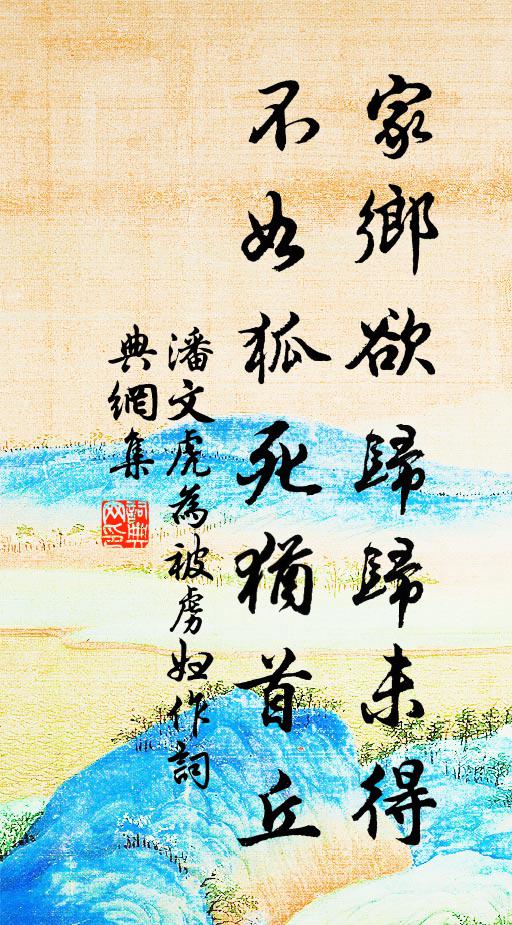 家鄉欲歸歸未得
不如狐死猶首丘
潘文虎為被虜婦作詞
典網集
詞典网印